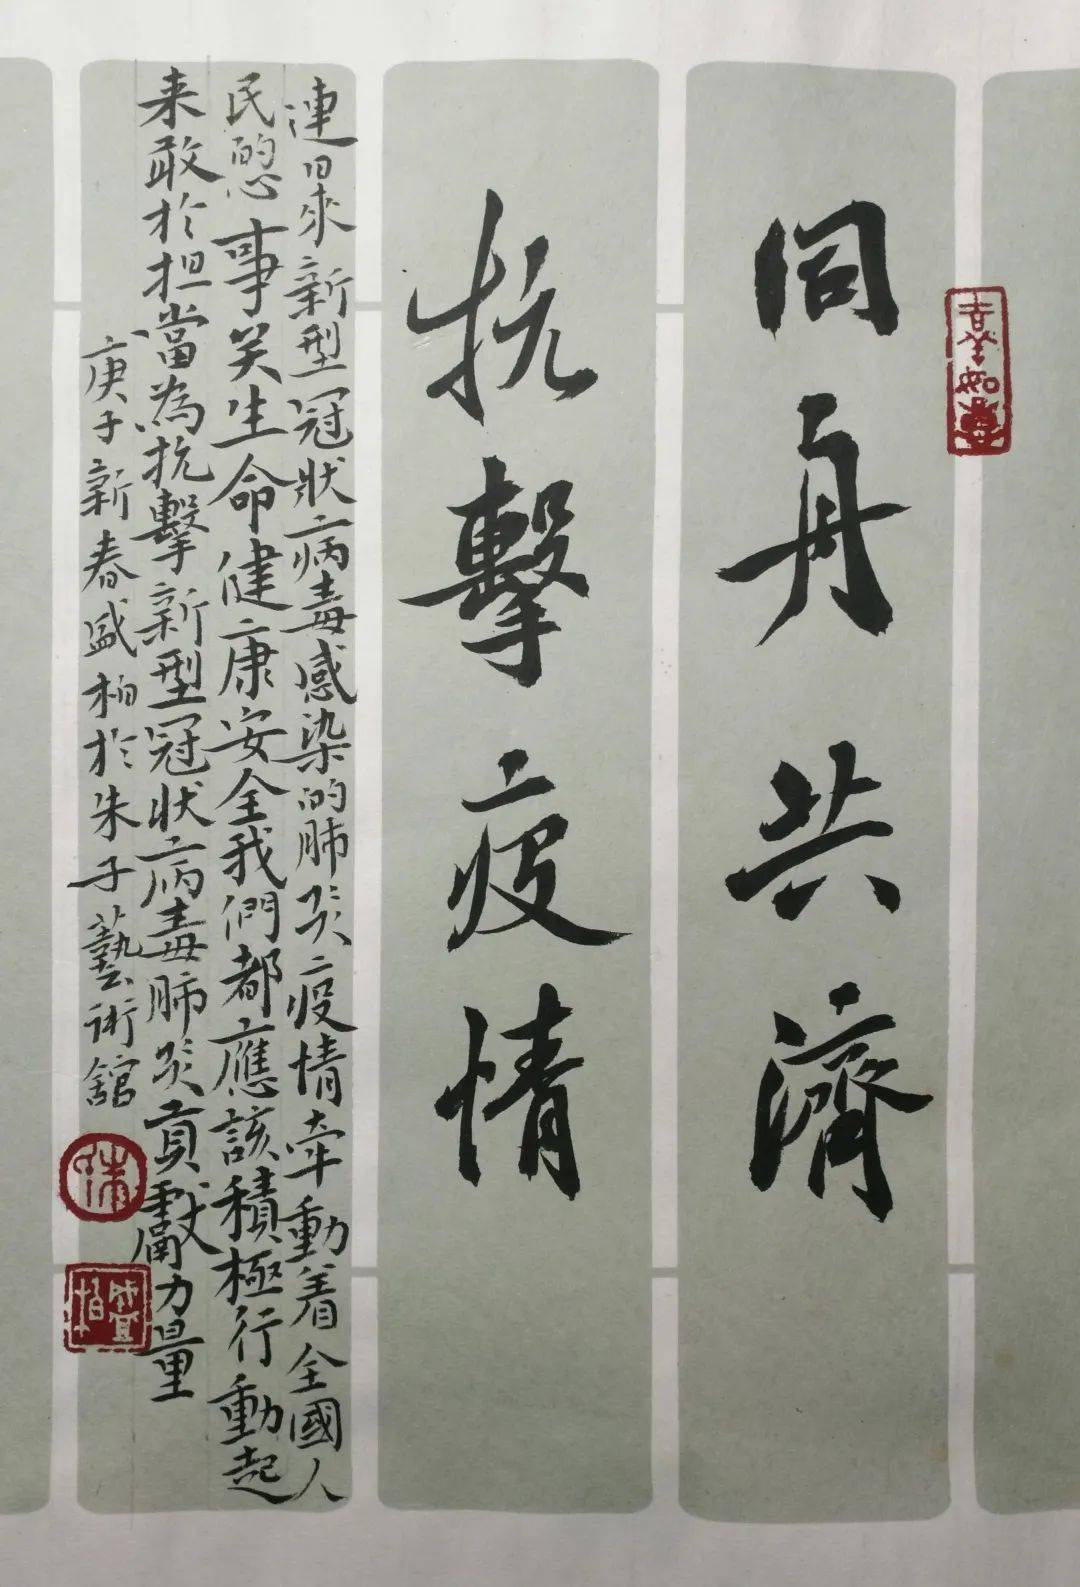 同舟共濟
抗擊疫情
連日來新型冠狀病毒感染的肺炎疫情牽動着全國人
民的心事关生命健康安全我們都應該積極行動起
来敢於担當為抗擊新型冠狀病毒肺炎貢獻力量
庚子新春盛柏於朱子藝術舘
吉祥如意
朱
盛柏